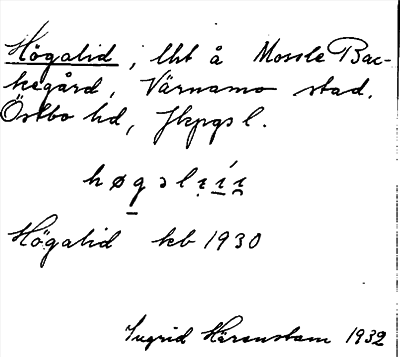 Högalid, lht å Mossle Bac-
kegård, Värnamo stad.
Östbo hd, Jkpgs l.
Högalid kb 1930
Ingrid Härenstam 1932